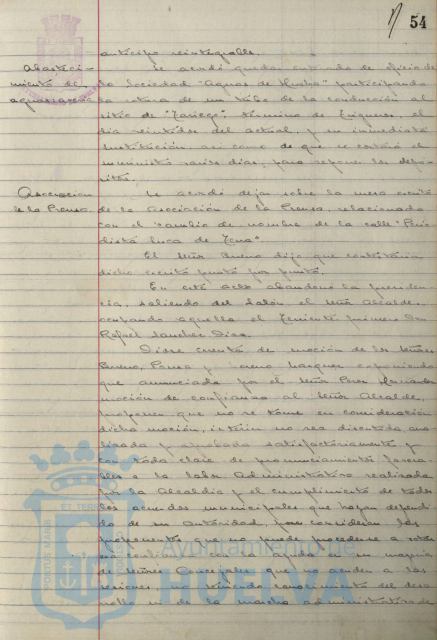 54
anticipo reintegrable.
Abasteci- Se acordó quedar enterado de oficio de
miento de la Sociedad "Aguas de Huelva" participando
aguas la rotura de un tubo de la conducción al
sitio de término de el
día veintidos del actual, y su inmediata
sustitución así como de que se cortará el
suministro varios días, para reponer los depó-
sitos.
Asociación Se acordó dejar sobre la mesa escrito
de la Prensa. de la Asociación de la Prensa, relacionado
con el cambio de nombre de la calle "Perio
dista Luca de Tena"
El Señor Bueno dijo que contestaría
dicho escrito punto por punto.
En este acto abandona la presiden-
cia, saliendo del Salón, el Señor Alcalde,
ocupando aquella el Teniente primero Don
Rafael Sanchez Diaz.
Dióse cuenta de moción de los Señores
Bueno, Ponce y Moreno Marquez exponiendo
que anunciada por el Señor Pérez
moción de confianza al Señor Alcalde,
proponen que no se tome en consideración
dicha moción, interin no sea discutida, ana-
lizada y aprobada satisfactoriamente y
con toda clase de pronunciamientos favora-
bles a la labor Administrativa realizada
por la Alcaldía y el cumplimiento de todos
los acuerdos municipales que hayan dependi-
do de su Autoridad, pues consideran los
proponentes que no puede procederse a votar
mayoría
de Señores Concejales que no acuden a las
sesiones, no teniendo conocimiento del desa
rrollo ni de la marcha administrativa de
EL TERRE
PORTUS MARIS
CUSTODIA
Ayuntamiento de
HUELVA